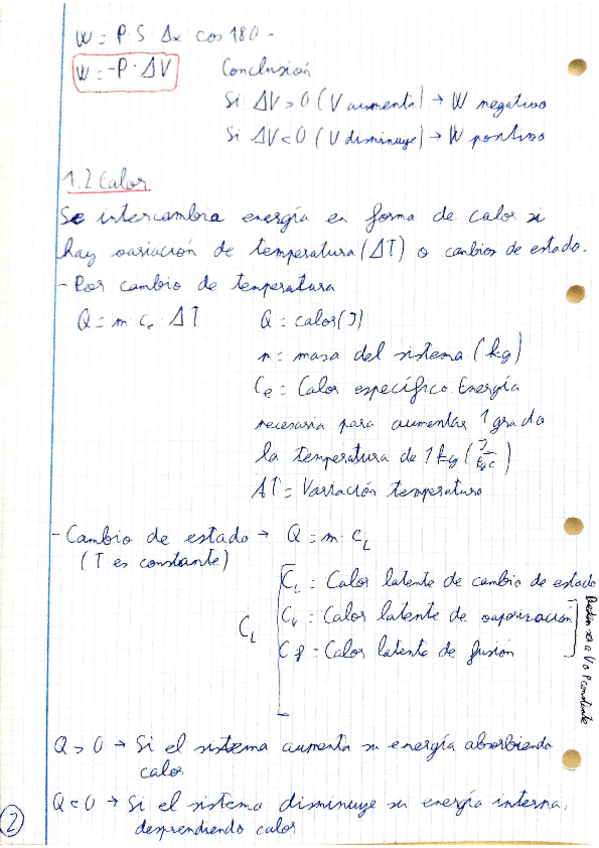 W = P · S · Δx · cos 180 -
W = -P · ΔV
Conclusión
Si ΔV > 0 (V aumenta) → W negativo
Si ΔV < 0 (V disminuye) → W positivo
1.2 Calor
Se intercambia energía en forma de calor si
hay variación de temperatura (ΔT) o cambios de estado.
- Por cambio de temperatura
Q = m · Ce · ΔT
Q = calor (J)
m: masa del sistema (kg)
Ce: Calor específico. Energía
necesaria para aumentar 1 grado
la temperatura de 1 kg (J/kg·C)
ΔT = Variación temperatura
- Cambio de estado → Q = m · CL
(T es constante)
CL
CL: Calor latente de cambio de estado
Cv: Calor latente de vaporización
Cf = Calor latente de fusión
a V o P constante
Q > 0 → Si el sistema aumenta su energía absorbiendo
calor
Q < 0 → Si el sistema disminuye su energía interna,
desprendiendo calor
2